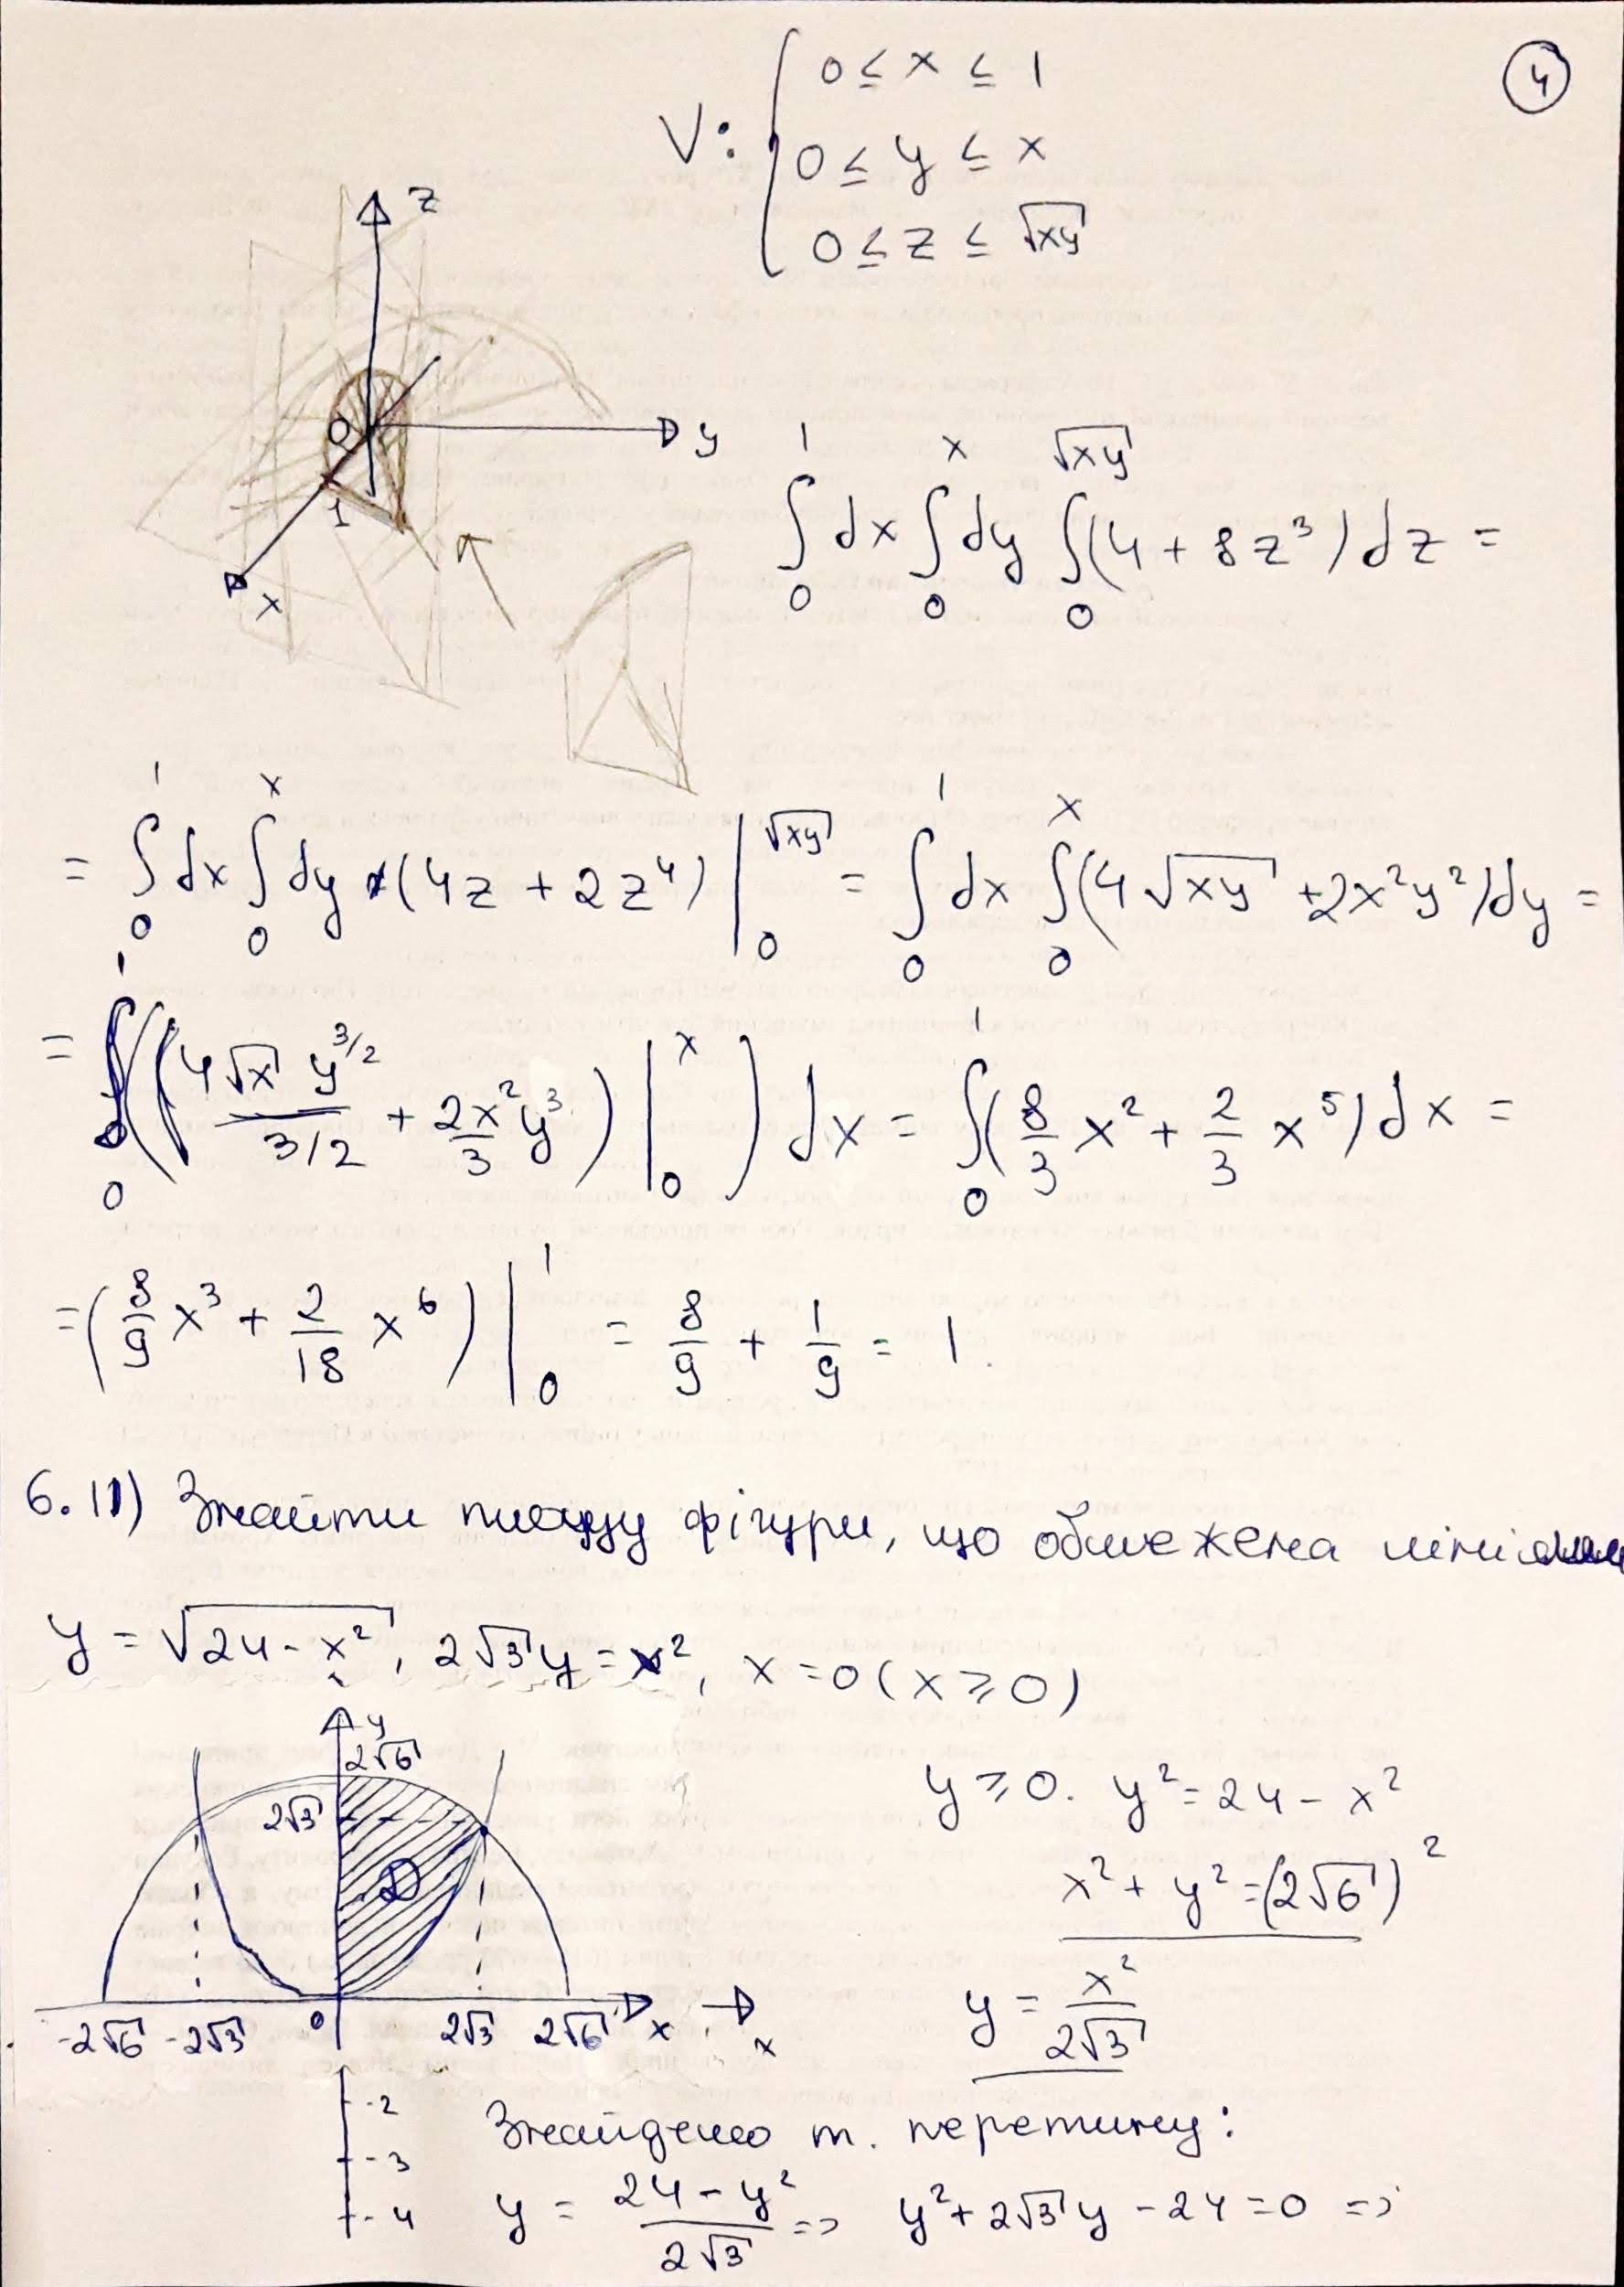 4
V: { 0 ≤ x ≤ 1
0 ≤ y ≤ x
0 ≤ z ≤ √xy
z
0
y
1
x
∫₀¹ dx ∫₀ˣ dy ∫₀^√xy (4 + 8z³) dz =
= ∫₀¹ dx ∫₀ˣ dy (4z + 2z⁴) |₀^√xy = ∫₀¹ dx ∫₀ˣ (4√xy + 2x²y²) dy =
= ∫₀¹ ((4√x y^3/2 / 3/2 + 2x²y³ / 3) |₀ˣ) dx = ∫₀¹ (8/3 x² + 2/3 x⁵) dx =
= (8/9 x³ + 2/18 x⁶) |₀¹ = 8/9 + 1/9 = 1.
6.11) Знайти площу фігури, що обмежена лініями
y = √24 - x², 2√3 y = x², x = 0 (x ≥ 0)
y
2√6
2√3
D
-2√6 -2√3 0 2√3 2√6 x x
-2
-3
-4
y ≥ 0. y² = 24 - x²
x² + y² = (2√6)²
y = x² / 2√3
Знайдемо т. перетину:
y = 24 - y² / 2√3 => y² + 2√3 y - 24 = 0 =>